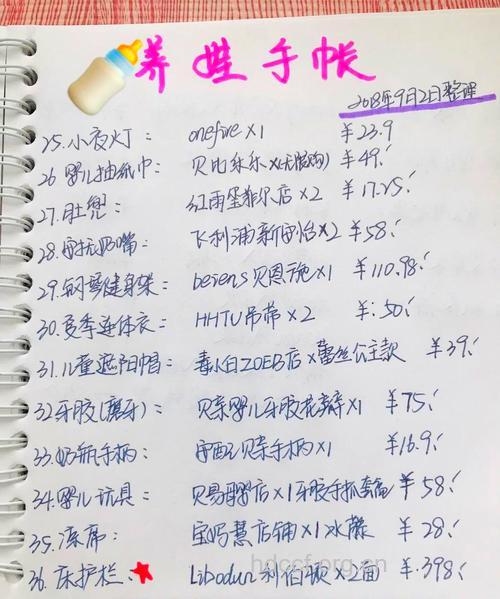 养娃手帐
2018年9月2日整理
25.小夜灯： onefire x1 ¥23.9
26 婴儿抽纸巾： 贝比乐乐 x ¥49！
27.肚兜： 红雨蛋菲尔店 x2 ¥17.25！
28.安抚奶嘴： 飞利浦新安怡 x2 ¥58！
29.钢琴健身架： beiens贝恩施x1 ¥110.98！
30.夏季连体衣： HHTU吊带 x2 ¥:50！
31.儿童遮阳帽： 毒小白ZOEB店 x蕾丝公主款 ¥39！
32牙胶(磨牙)： 贝亲婴儿牙胶花瓣x1 ¥75！
33.奶瓶手柄： 贝亲手柄x1 ¥16.9！
34.婴儿玩具： 贝易店x1牙胶手抓套 ¥58！
35.凉席： 宝妈慧店铺x1冰藤 ¥28！
36.床护栏： Libodun利伯顿x2面 ¥.398！
hdccf.org.cn